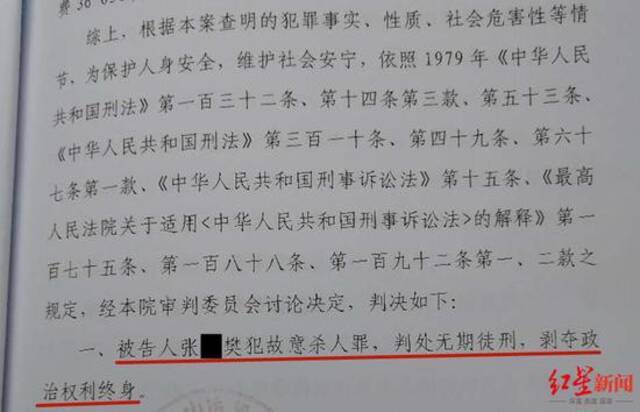 综上，根据本案查明的犯罪事实、性质、社会危害性等情
节，为保护人身安全，维护社会安宁，依照 1979 年《中华人民
共和国刑法》第一百三十二条、第十四条第三款、第五十三条、
《中华人民共和国刑法》第三百一十条、第四十九条、第六十
七条第一款、《中华人民共和国刑事诉讼法》第十五条、《最高
人民法院关于适用<中华人民共和国刑事诉讼法>的解释》第一
百七十五条、第一百八十八条、第一百九十二条第一、二款之
规定，经本院审判委员会讨论决定，判决如下：
一、被告人张 樊犯故意杀人罪，判处无期徒刑，剥夺政
治权利终身。
红星新闻